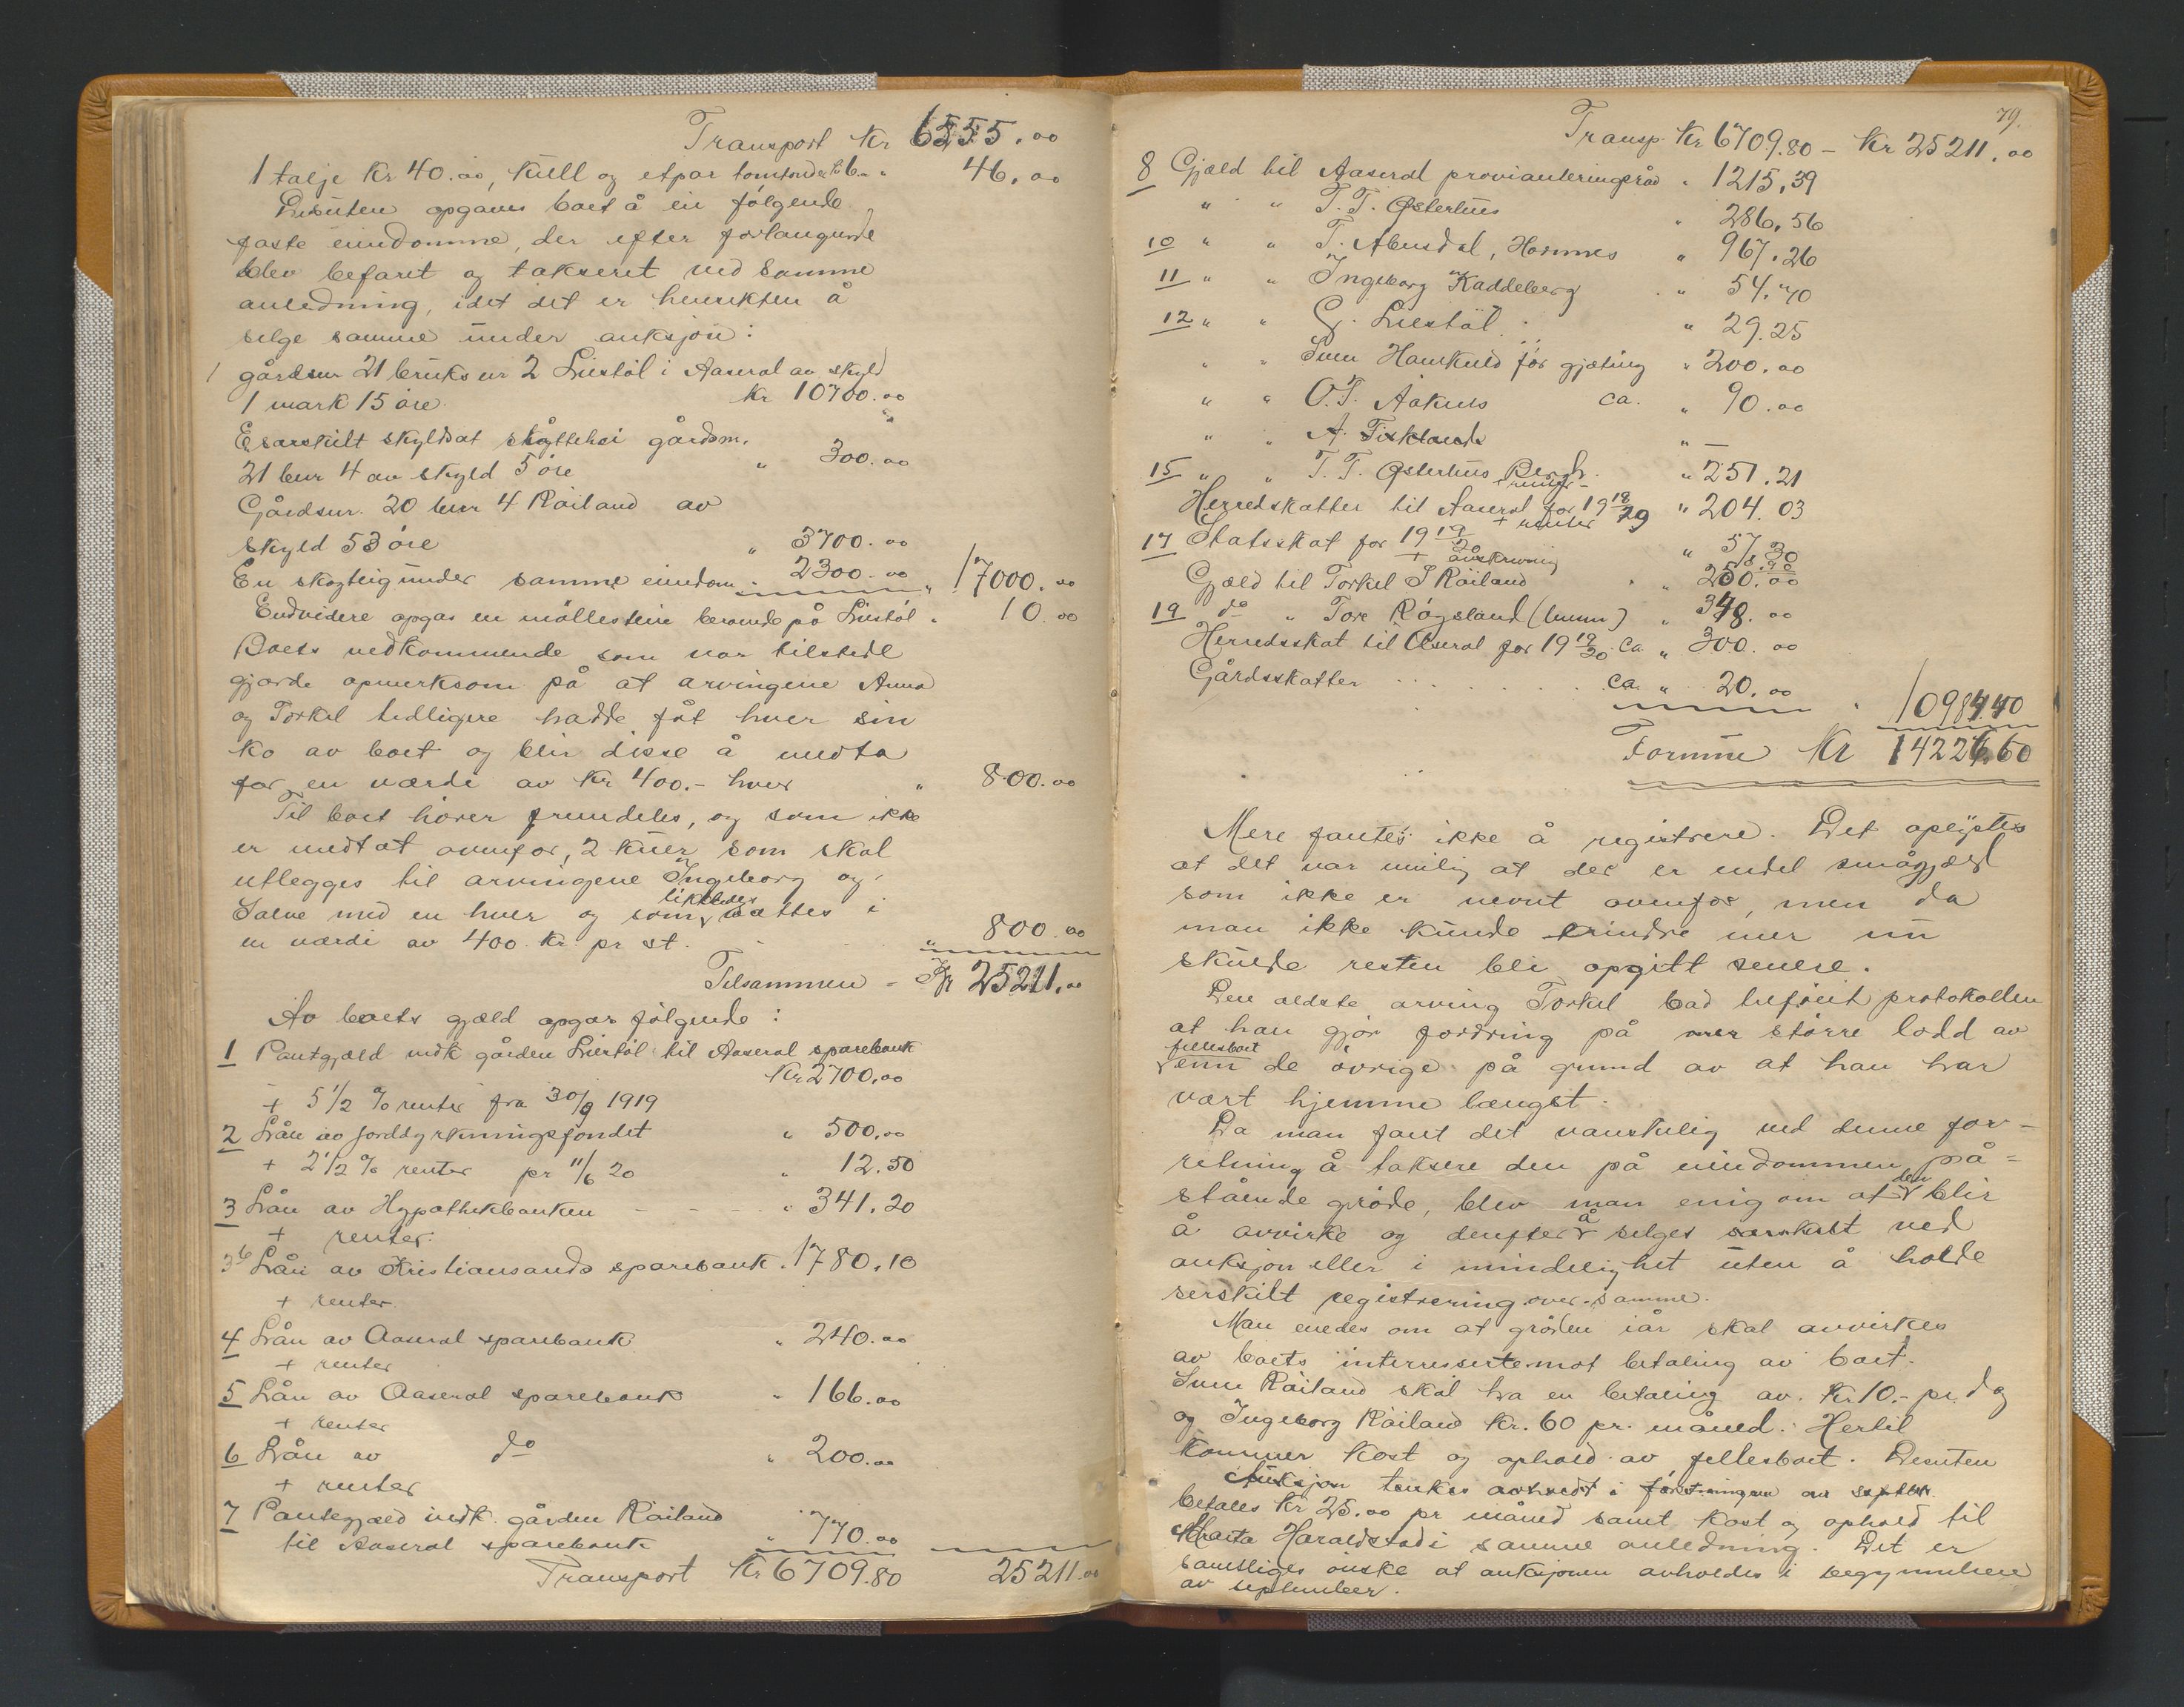 Transport Kr 6555.00
1 talje Kr 40.00, Kull og etpar tomtönder kr 6.- " 46.00
Desuten opgaves boet å eie følgende
faste eiendomme, der efter forlangende
blev befaret og takseret ved samme
anledning, idet det er hensikten å
selge samme under auksjon:
1 gårdsnr 21 bruksnr 2 Liestöl i Aaseral av skyld
1 mark 15 øre. Kr 10700.00
E særskilt skyldsat slåttehei gårdsn.
21 bnr 4 av skyld 5 öre " 300.00
Gårdsnr. 20 bnr 4 Röiland av
skyld 53 öre " 3700.00
En skogteig under samme eiendom " 2300.00 " 17000.00
Endvidere opgas en möllestein beroende på Liestöl " 10.00
Boets vedkommende som var tilstede
gjorde opmerksom på at arvingene Anna
og Torkel tidligere hadde fåt hver sin
ko av boet og blir disse å medta
for en værdi av Kr 400.- hver " 800.00
Til boet hörer fremdeles, og som ikke
er medtat ovenfor, 2 kuer som skal
utlegges til arvingene Ingeborg og
Salve med en hver og som likeledes sættes i
en værdi av 400 kr. pr st. " 800.00
Tilsammen - Kr 25211.00
Av boets gjæld opgas følgende:
1 Pantgjæld vedk gården Liestöl til Aaseral sparebank
Kr 2700.00
+ 5 1/2 % renter fra 30/9 1919
2 Lån av Jorddyrkningsfondet " 500.00
+ 2 1/2 % renter pr 11/6 20 " 12.50
3 Lån av Hypothekbanken - - - " 341.20
+ renter.
3b Lån av Kristiansands sparebank " 1780.10
+ renter
4 Lån av Aaseral sparebank " 240.00
+ renter
5 Lån av Aaseral sparebank " 166.00
+ renter
6 Lån av do " 200.00
+ renter
7 Pantegjæld vedk. gården Röiland
til Aaseral sparebank " 770.00
Transport Kr 6709.80 25211.00
79.
Transp. Kr 6709.80 - Kr 25211.00
8 Gjæld til Aaseral provianteringsråd " 1215.39
" " T. T. Østerhus " 286.56
10 " " T. Abusdal, Hornnes " 967.26
11 " " Ingeborg Kaddeberg " 54.40
12 " " G. Liestöl " 29.25
" " Sven Hamkuld for gjæting " 200.00
" " O.T. Aaknes ca. " 90.00
" " A. Fiskland " —
15 " " T. T. Østerhus Bergh. " 251.21
+ renter -
Herredskatter til Aaseral for 19 18/19 " 204.03
+ renter
17 Statsskat for 19 19/20 " 57.30
Gjæld til Torkel S Röiland " 250.00
19 do " Tore Røgsland 348.00
Herredsskat til Aaseral for 19 19/20 ca " 300.00
Gårdsskatter . . . . . ca " 20.00 " 10984.40
Formue Kr 14226.60
Mere fantes ikke å registrere. Det oplystes
at det var mulig at der er endel smågjæld
som ikke er nevnt ovenfor, men da
man ikke kunde erindre mer nu
skulde resten bli opgitt senere.
Den ældste arving Torkel bad tilføiet protokollen
at han gjör fordring på större lodd av
fellesboet
enn de övrige på grund av at han har
vært hjemme længst.
Da man fant det vanskelig ved denne for-
retning å taksere den på eiendommen på-
stående gröde, blev man enig om at den blir
å avvirke og derefter å selges særskilt ved
auksjon eller i mindelighet uten å holde
serskilt registrering over samme.
Man enedes om at gröden iår skal avvirkes
av boets interressertemot betaling av boet.
Sven Röiland skal ha en betaling av Kr 10.- pr. dag
og Ingeborg Röiland Kr. 60 pr. måned. Hertil
kommer kost og ophold av fellesboet. Desuten
Auksjon tenkes avholdt i av septbr.
betales Kr 25.00 pr måned samt kost og ophold til
Marta Haraldstad i samme anledning. Det er
samtliges önske at auksjonen avholdes i begynnelsen
av september.